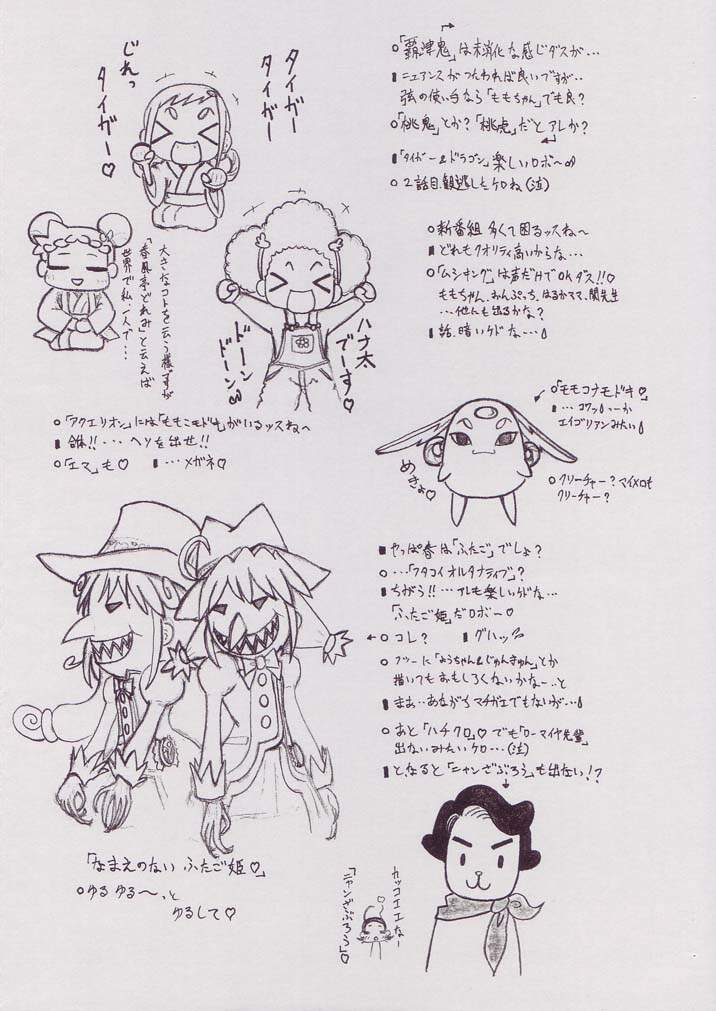 ○「覇津鬼」は未消化な感じダスが…
▮ニュアンスがつたわれば良いですが…
弦の使い手なら「ももちゃん」でも良?
○「桃鬼」とか?「桃虎」だとアレか?
▮「タイガー&ドラゴン」楽しいロボ〜
○2話目観逃したケロね(泣)
タイガー
タイガー
じれっ
タイガー♡
○新番組多くて困るッスね〜
▮どれもクオリティ高いからな…
○「ムシキング」は声だけでOKダス!!
ももちゃん、おんぷっち、はるかママ、関先生
…他にも出るかな?
▮話、暗いケドな…
大きなコトを云う様ですが
「春風亭どれみ」と云えば
世界で私一人で…
ハナ太
でーす♡
ドーン
ドーン
○「アクエリオン」には「ももこモドキ」がいるッスね〜
▮合体!!…ヘソを出せ!!
○「エマ」も♡ ▮…メガネ♡
○「モモコナモドキ♡」
▮…コワッ
エイゴリアンみたい
めきょ♡
○クリーチャー?マイメロも
クリーチャー?
▮やっぱ春は「ふたご」でしょ?
○…「フタコイオルタナティブ」?
▮ちがう!!…アレも楽しいケドな…
「ふたご姫」だロボー♡
○コレ? ▮グハッ
○フツーに「みうちゃん&じゅんきゅん」とか
描いてもおもしろくないかなー…と
▮まぁ…あながちマチガエでもないが…
○あと「ハチクロ」♡でも「ローマイヤ先輩」
出ないみたいケロ…(泣)
▮と、なると「ニャンざぶろう」も出ない!?
「なまえのない ふたご姫♡」
○ゆるゆる〜っと
ゆるして♡
カッコエエなー
「ニャンざぶろう」♡